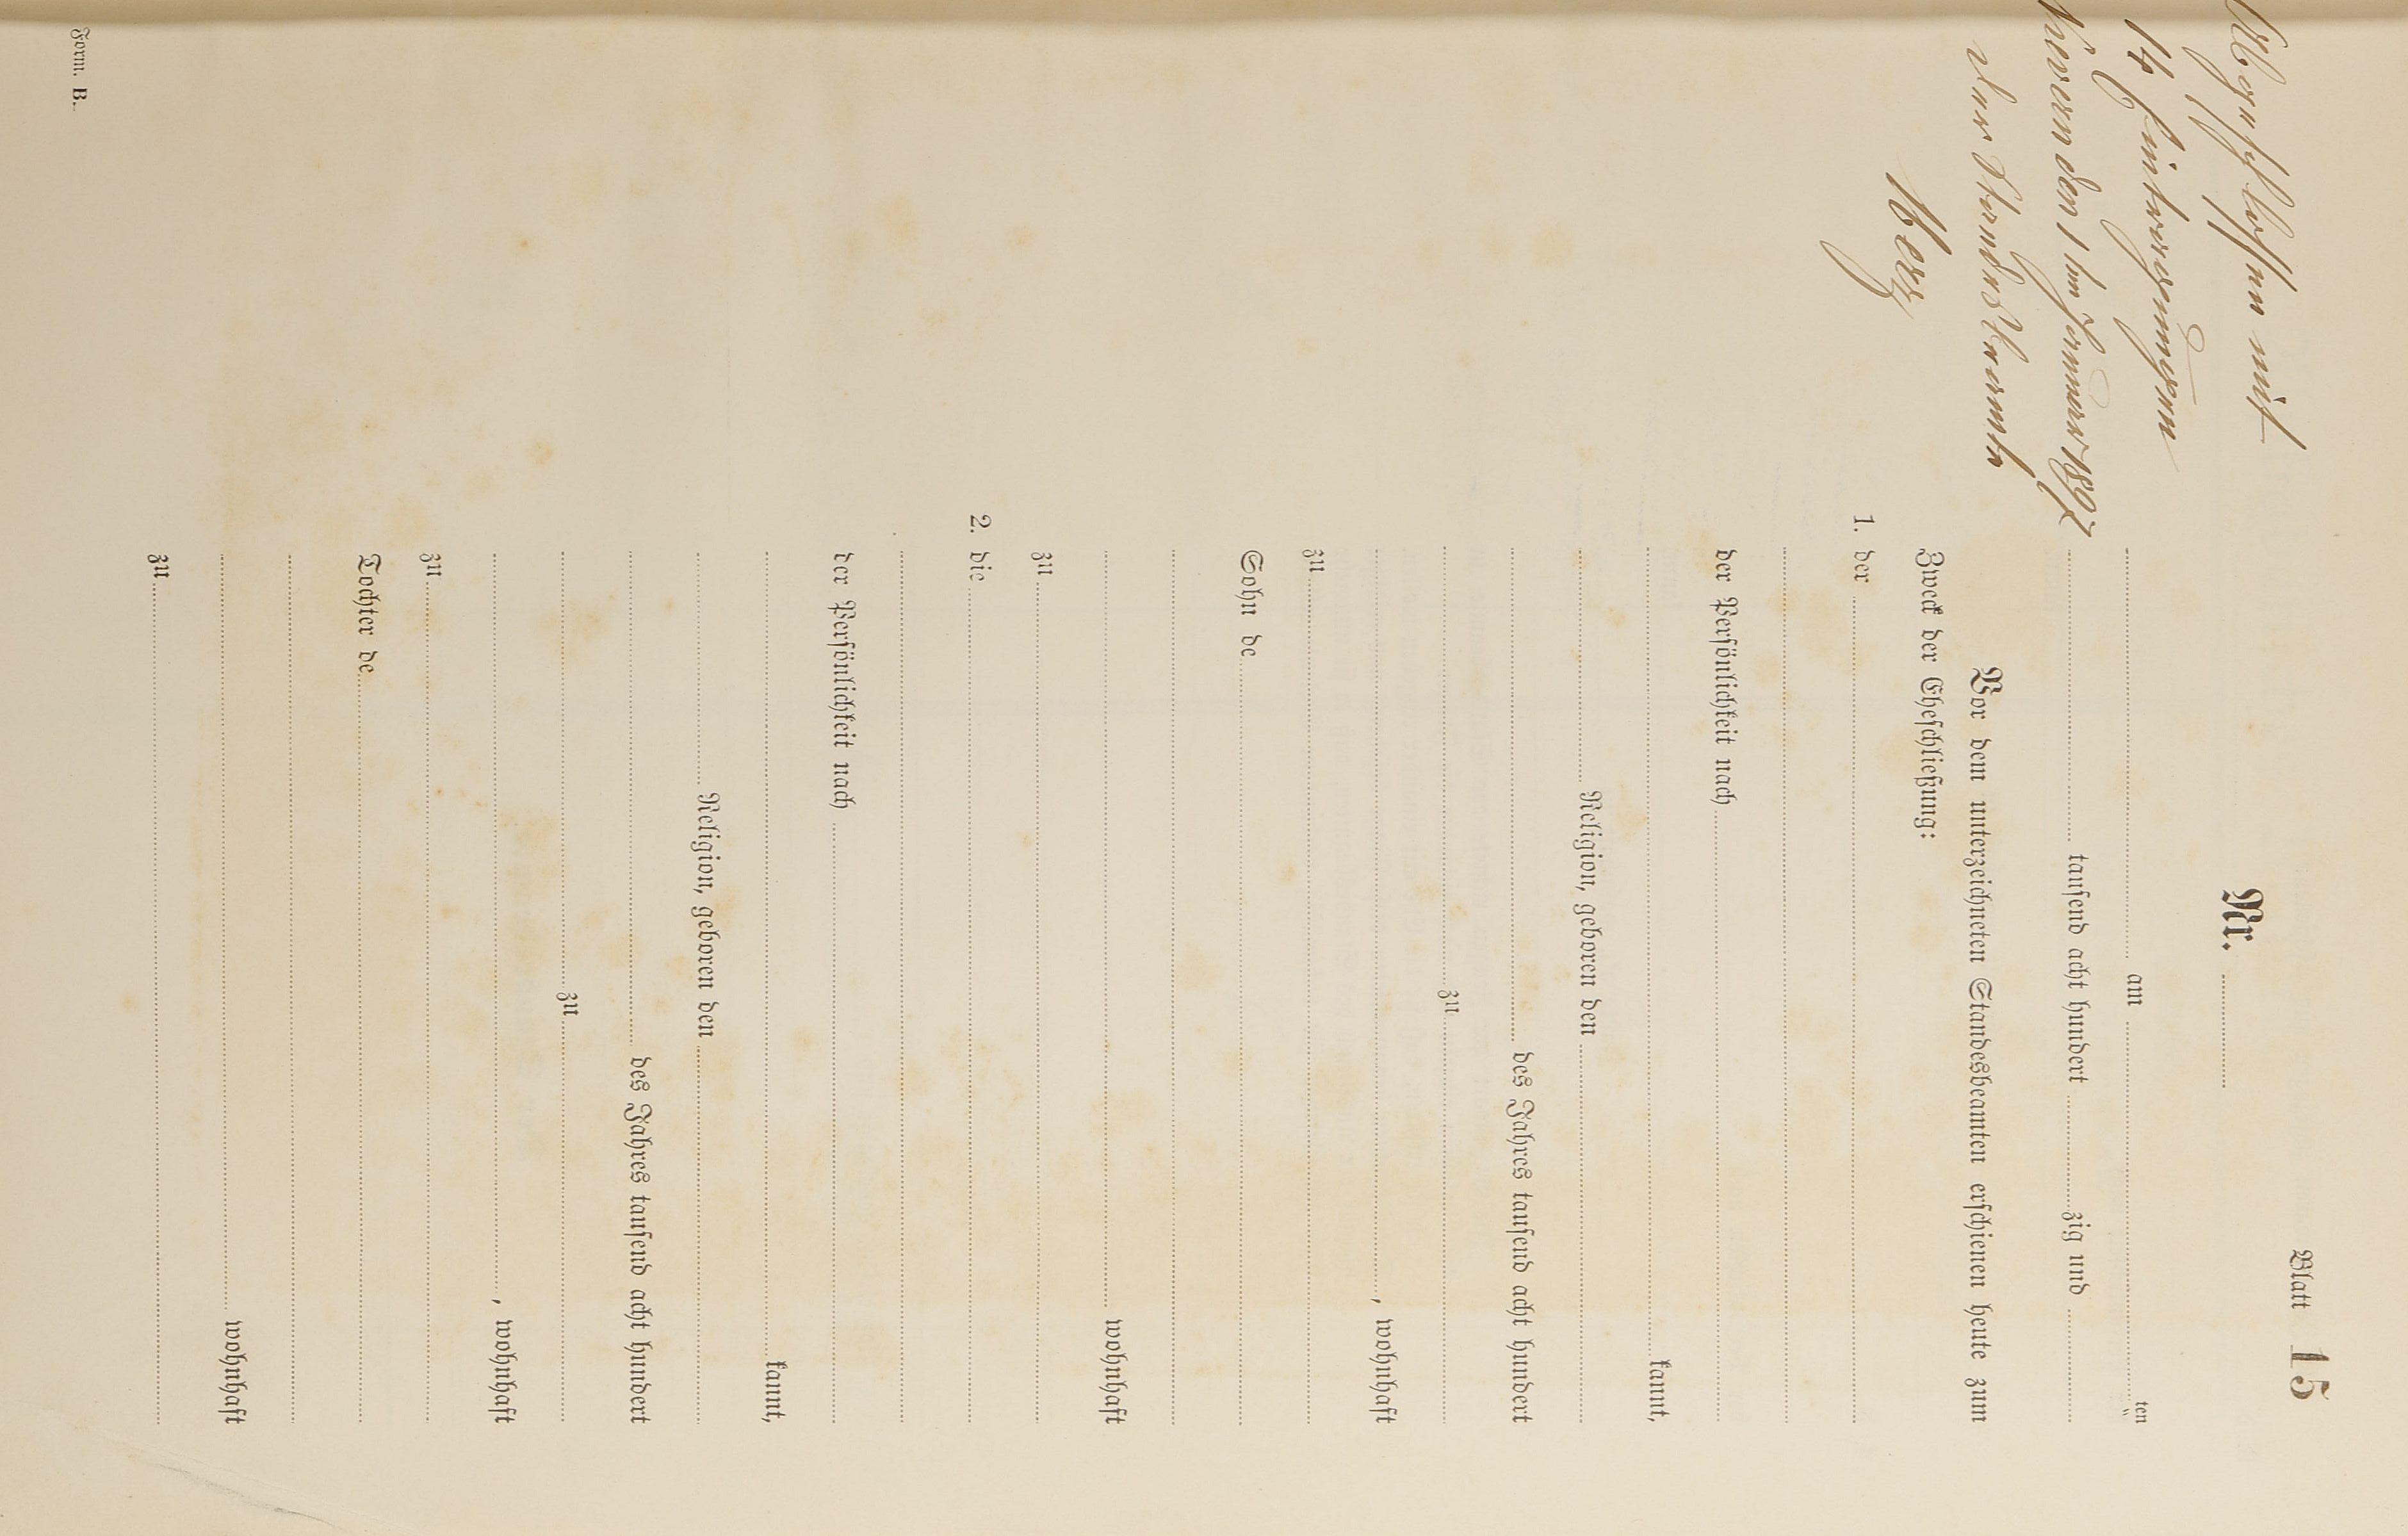 Blatt 15
Nr.
Abgeschlossen mit
14 Eintragungen
Nievern den 1ten Januar 1897
der Standesbeamte
am ten
tausend acht hundert zig und
Vor dem unterzeichneten Standesbeamten erschienen heute zum
Zweck der Eheschließung:
1. der
der Persönlichkeit nach
kannt,
Religion, geboren den
des Jahres tausend acht hundert
zu
, wohnhaft
zu
Sohn de
wohnhaft
zu
2. die
der Persönlichkeit nach
kannt,
Religion, geboren den
des Jahres tausend acht hundert
zu
, wohnhaft
zu
Tochter de
wohnhaft
zu
Form. B.